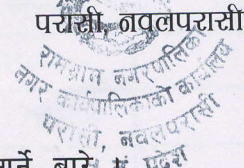 परासी, नवलपरासी
रामग्राम नगरपालिका
नगर कार्यपालिकाको कार्यालय
परासी, नवलपरासी
गर्ने बारे । प्रदेश